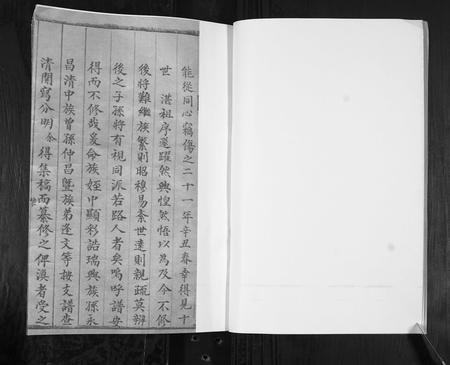 能從同心竊傷之二十一年辛丑春幸得見十
世 湛祖序遷躍然興惶然悟以為及今不修
後將難繼族繁則昭穆易紊世遠則親疏莫辨
後之子孫將有視同派若路人者矣嗚呼譜安
得而不修哉爰命族姪中顯彩誥瑞興族孫永
昌清中族曾孫仲昌暨族弟達文等按支譜查
清開寫分明余得集稿而纂修之俾淇者受之